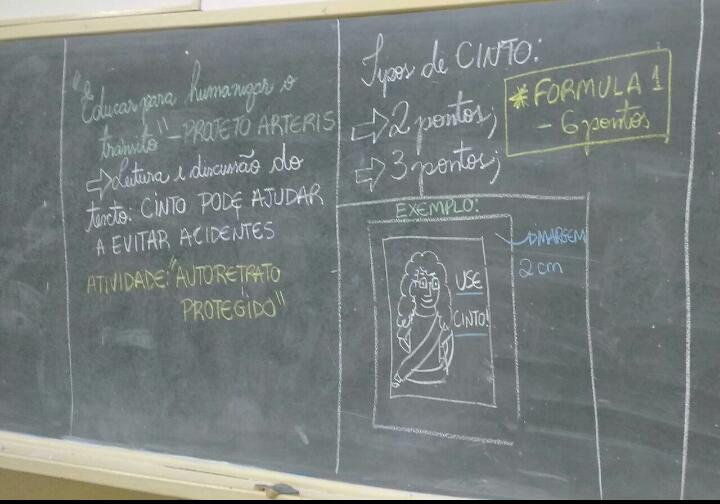 "Educar para humanizar o
trânsito" - PROJETO ARTERIS
⇨ Leitura e discussão do
texto: CINTO PODE AJUDAR
A EVITAR ACIDENTES
ATIVIDADE: "AUTORETRATO
PROTEGIDO"
Tipos de CINTO:
⇨ 2 pontos;
⇨ 3 pontos;
* FORMULA 1
- 6 pontos
EXEMPLO:
MARGEM
2 cm
USE
CINTO!